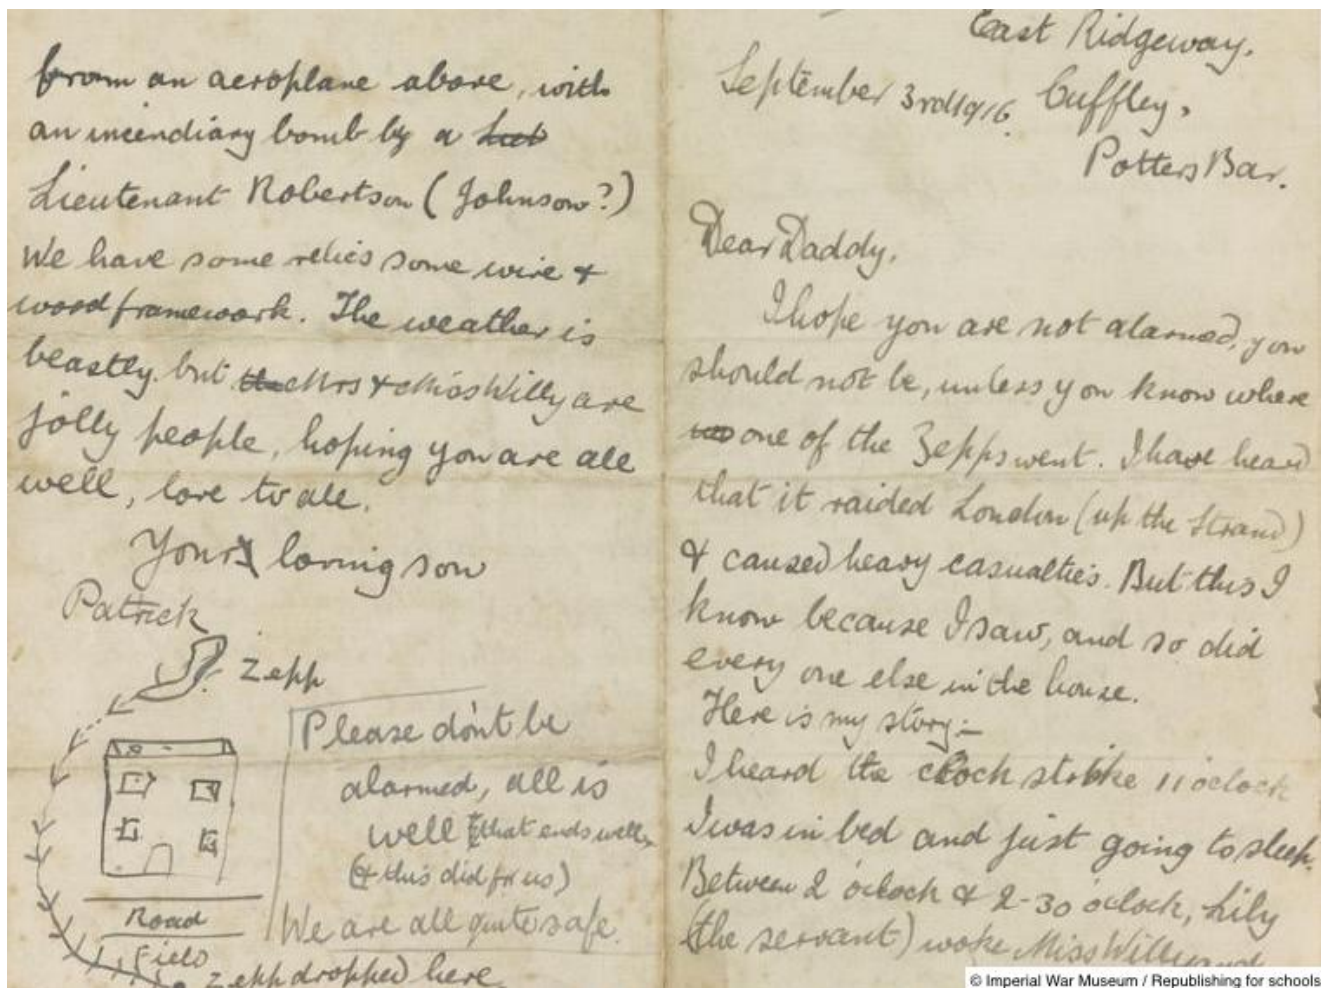 from an aeroplane above, with
an incendiary bomb by a
Lieutenant Robertson (Johnson?)
We have some relics some wire &
wood framework. The weather is
beastly. but the Mrs & Miss Willy are
jolly people, hoping you are all
well, love to all.
Your loving son
Patrick
Zepp
Please don't be
alarmed, all is
well (that ends well
(& this did for us)
We are all quite safe.
Road
Field
Zepp dropped here
East Ridgeway,
September 3rd 1916. Cuffley,
Potters Bar.
Dear Daddy,
I hope you are not alarmed, you
should not be, unless you know where
one of the Zepps went. I have heard
that it raided London (up the Strand)
& caused heavy casualties. But this I
know because I saw, and so did
every one else in the house.
Here is my story:-
I heard the clock strike 11 o'clock
I was in bed and just going to sleep.
Between 2 o'clock & 2-30 o'clock, Lily
(the servant) woke Miss Willy and
© Imperial War Museum / Republishing for schools